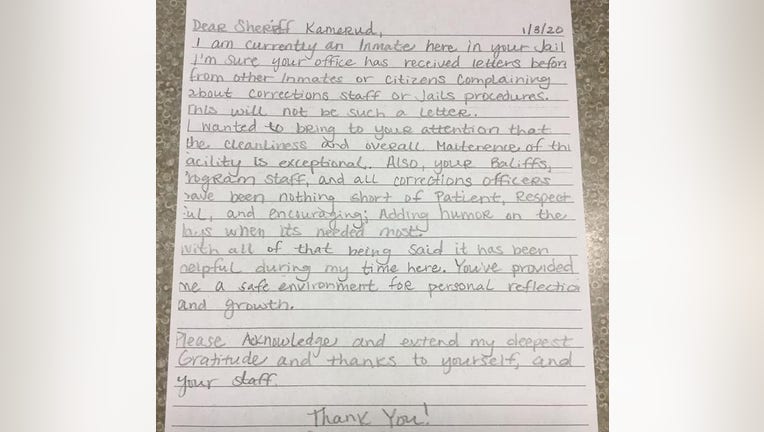 Dear Sheriff Kamerud, 1/8/20
I am currently an Inmate here in your Jail
I'm sure your office has received letters before
from other Inmates or Citizens Complaining
about corrections staff or Jails procedures.
This will not be such a letter.
I wanted to bring to your attention that
the cleanliness and overall Maitenence of this
facility is exceptional. Also, your Baliffs,
program staff, and all corrections officers
have been nothing short of Patient, Respect
ful, and encouraging; Adding humor on the
days when its needed most.
With all of that being said it has been
helpful during my time here. You've provided
me a safe environment for personal reflection
and growth.
Please Acknowledge and extend my deepest
Gratitude and thanks to yourself, and
your staff.
Thank You!